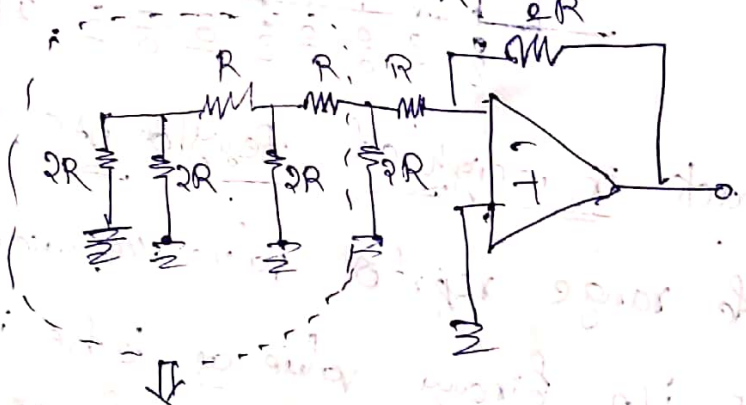 2R
R R R
2R 2R 2R 2R
-
+